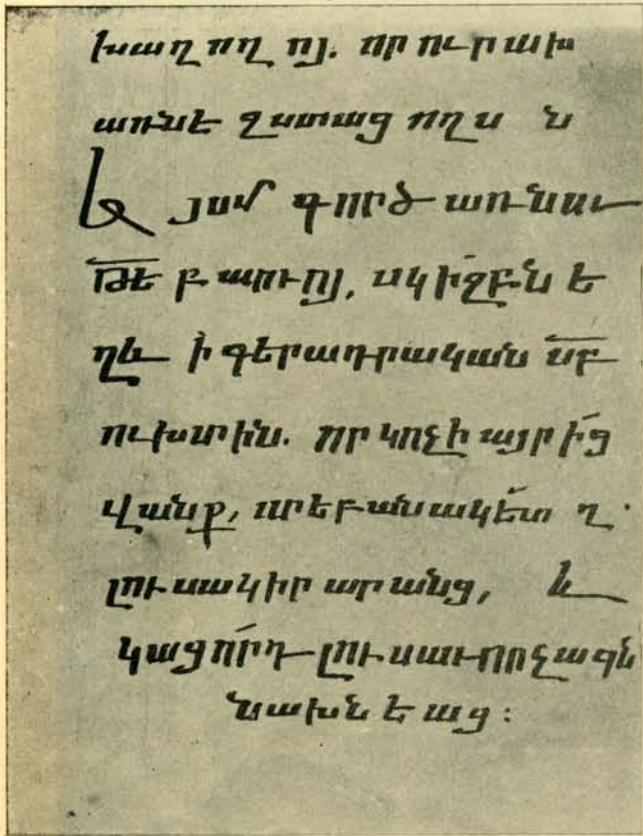 խաղողոյ. որ ուրախ
առնէ զստացողս ն
և յսմ գործառնաւ
թե բարւոյ, սկիզբն ե
ղև ի գերադրական սբ
ուխտին. որ կոչի այրից
վանք, որ է բանակետ ղ
լուսակիր արանց, և
կացորդ լուսաւորչազն
նախնեաց: